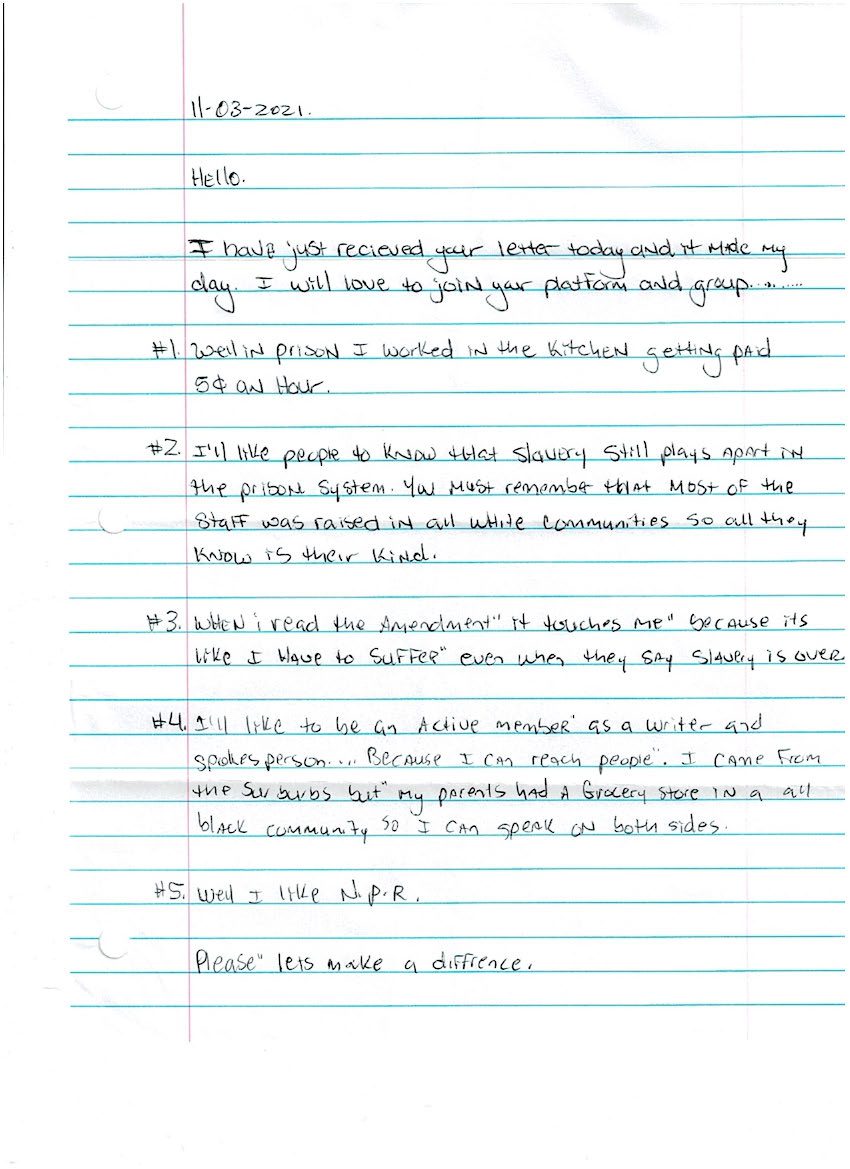 11-03-2021.
Hello.
I have just recieved your letter today and it made my
day. I will love to join your platform and group........
#1. Well in prison I worked in the kitchen getting paid
5¢ an hour.
#2. I'll like people to know that slavery still plays apart in
the prison system. You must remember that most of the
staff was raised in all white communities so all they
know is their kind.
#3. When i read the Amendment" it touches me" because its
like I have to suffer" even when they say slavery is over
#4. I'll like to be an Active member' as a writer and
spokesperson.... Because I can reach people". I came from
the Surburbs but" my parents had a Grocery store in a all
black community so I can speak on both sides.
#5. Well I like N.P.R.
Please" lets make a diffrence.